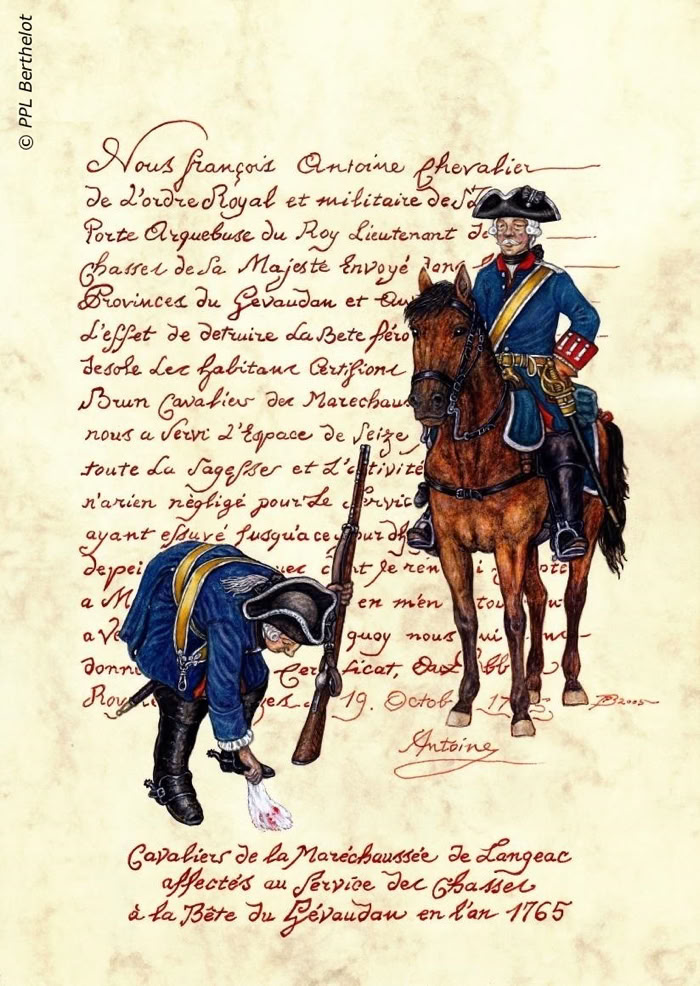 © PPL Berthelot
Nous françois Antoine Chevalier
de L'ordre Royal et militaire de St
Porte Arquebuse du Roy Lieutenant de
Chasses de Sa Majeste Envoyé dans
Provinces du Gevaudan et Auv
L'effet de detruire La Bete féro
desole Les habitans Certifions
Brun Cavalier des Marechaus
nous a servi L'Espace de Seize
toute La Sagesses et L'activité
n'arien nègligé pour Le Servic
ayant essuyé Jusqu'a ce jour
depei c Je ren
a M en m'en tou
a Ve quoy nous
donn Certificat,
Roy 19. Octob 17
Antoine
2005
Cavaliers de la Maréchaussée de Langeac
affectés au Service des Chasses
à la Bête du Gévaudan en l'an 1765